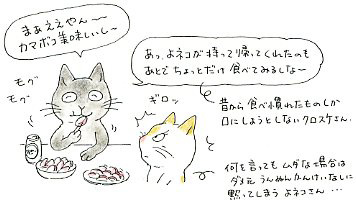 まあええやん〜
カマボコ美味しいし〜
あっ、よネコが持って帰ってくれたのも
あとでちょっとだけ食べてみるしな〜
モグ
モグ
ギロッ
昔から食べ慣れたものしか
口にしようとしないクロスケさん。
何を言ってもムダな場合は
ダメ元うんぬんかんけいなしに
黙ってしまうよネコさん…